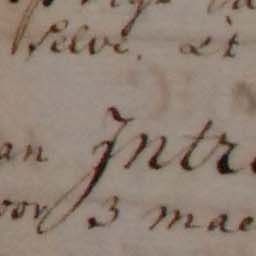 Selve. Et
an Intr
oor 3 mae